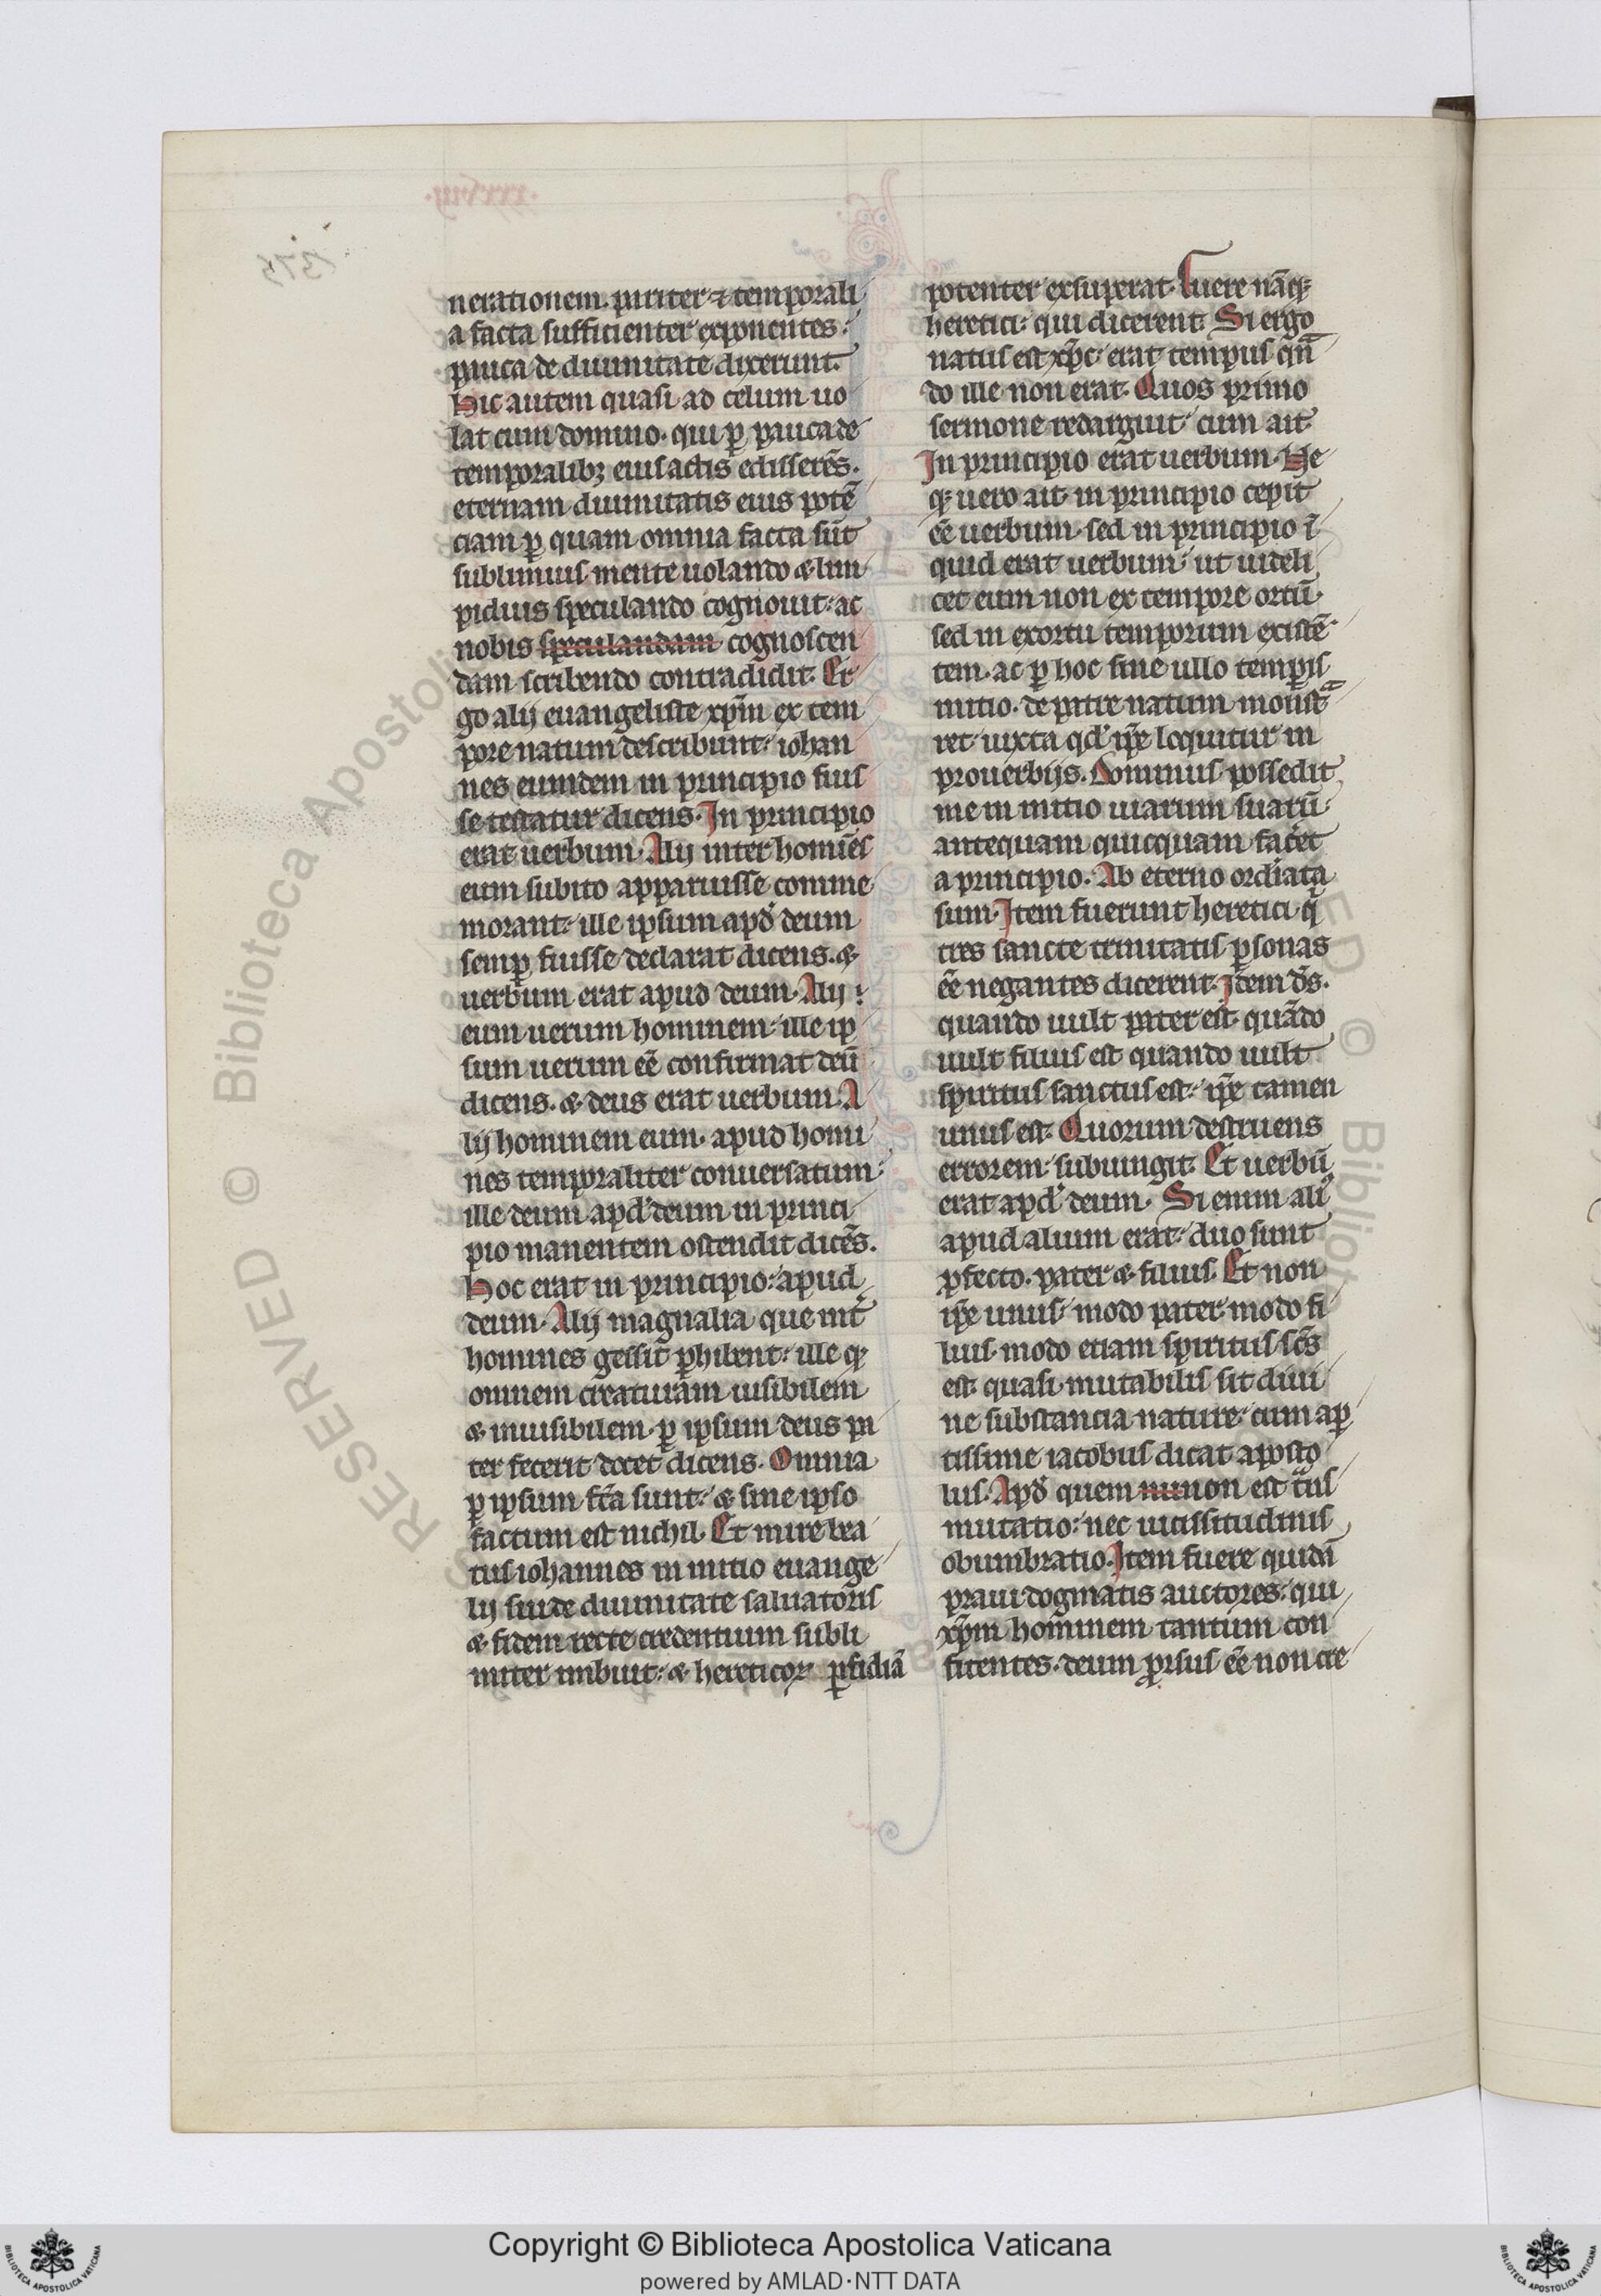 nerationem. pariter ⁊ temporali
a facta sufficienter exponentes:
pauca de diuinitate dixerunt.
Hic autem quasi ad celum uo
lat cum domino. qui ꝑ pauca de
temporalibꝫ eius actis edisserēs.
eternam diuinitatis eius potē
ciam ꝑ quam omnia facta sūt
sublimius mente uolando & lim
pidius speculando cognouit: ac
nobis speculandam cognoscen
dam scribendo contradidit. Er
go alij euangeliste xp̄m ex tem
pore natum describunt: iohan
nes eumdem in principio fuis
se testatur dicens. In principio
erat uerbum. Alij inter homīēs
eum subito apparuisse comme
morant: ille ipsum apd̓ deum
semꝑ fuisse declarat dicens. &
uerbum erat apud deum. Alij:
eum uerum hominem: ille ip
sum uerum eē confirmat deū
dicens. & deus erat uerbum. A
lij hominem eum. apud homi
nes temporaliter conuersatum:
ille deum apd̓ deum in princi
pio manentem ostendit dicēs.
Hoc erat in principio: apud
deum. Alij magnalia que int̓
homines gessit ꝑhibent: ille qꝫ
omnem creaturam uisibilem
& inuisibilem. ꝑ ipsum deus pa
ter fecerit docet dicens. Omnia
ꝑ ipsum fc̄a sunt: & sine ipso
factum est nichil. Et mire bea
tus iohannes in initio euange
lij sui de diuinitate saluatoris
& fidem recte credentium subli
miter imbuit: & hereticoꝝ ꝑfidiā
potenter exsuperat. Fuere nāqꝫ
heretici: qui dicerent. Si ergo
natus est xp̄c: erat tempus qn̄
do ille non erat. Quos primo
sermone redarguit: cum ait.
In principio erat uerbum. Ne
qꝫ uero ait in principio cepit
eē uerbum. sed in principio ī
quid erat uerbum: ut uideli
cet eum non ex tempore ortū.
sed in exortu temporum existē
tem. ac ꝑ hoc sine ullo temꝑis
initio. de patre natum monst̄
ret. iuxta qd̓ ip̄e loquitur in
prouerbijs. Dominus possedit
me in initio uiarum suarū:
antequam quicquam fac̓et
a principio. Ab eterno ordīata
sum. Item fuerunt heretici. q̄
tres sancte trinitatis ꝑsonas
eē negantes dicerent. Idem d̄s.
quando uult pater est. quādo
uult filius est quando uult
spiritus sanctus est: ip̄e tamen
unus est. Quorum destruens
errorem: subiungit. Et uerbū
erat apd̓ deum. Si enim ali᷒
apud alium erat: duo sunt
ꝓfecto. pater & filius. Et non
ip̄e unus: modo pater modo fi
lius. modo etiam spiritus sc̄s
est. quasi mutabilis sit diui
ne substancia nature: cum aꝑ
tissime iacobus dicat aposto
lus. Apd̓ quem nunon est t̄ns
mutatio: nec uicissitudinis
obumbratio. Item fuere quidā
praui dogmatis auctores: qui
xp̄m hominem tantum con
fitentes. deum ꝓrsus eē non cre
Copyright © Biblioteca Apostolica Vaticana
powered by AMLAD·NTT DATA